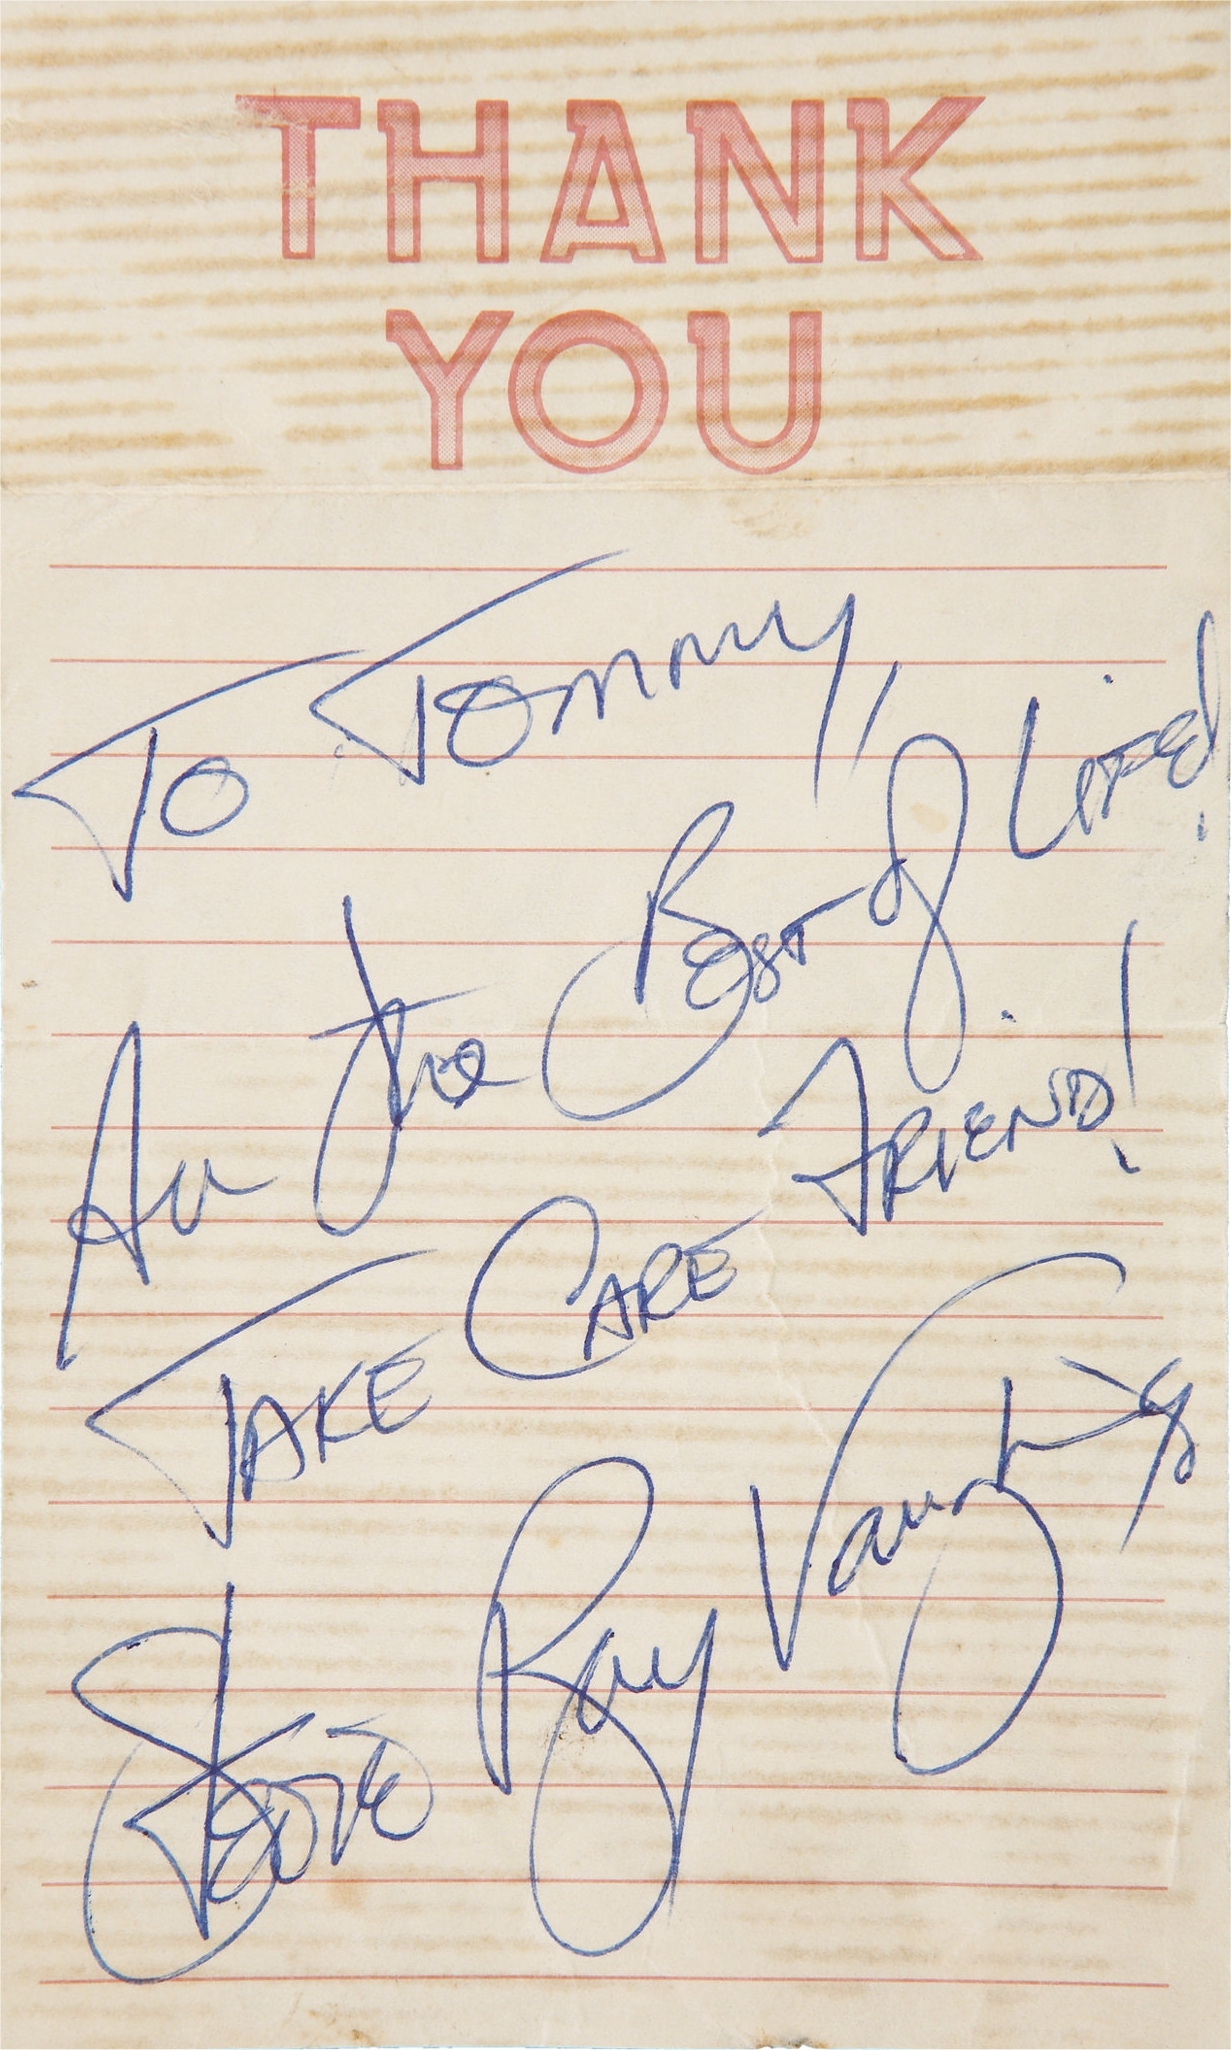 THANK
YOU
To Tommy,
All the Best of Life!
TAKE CARE FRIEND!
Stevie Ray Vaughan